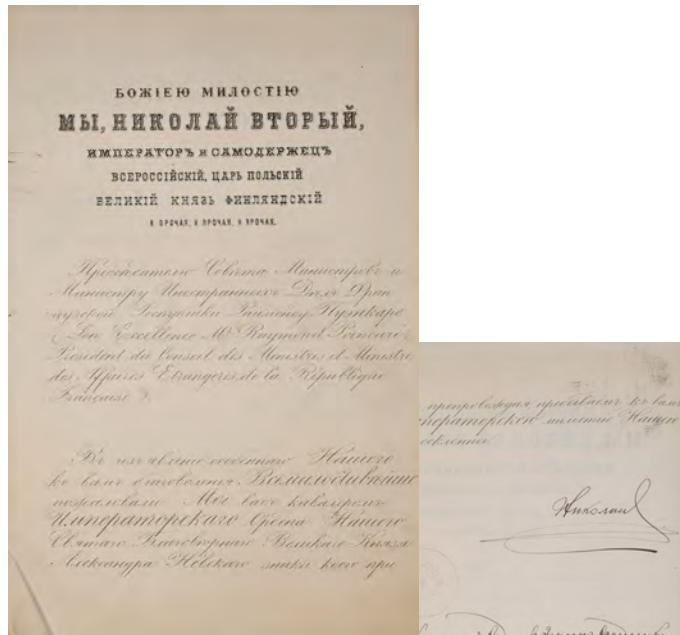 БОЖІЕЮ МИЛОСТІЮ
МЫ, НИКОЛАЙ ВТОРЫЙ,
ИМПЕРАТОРЪ И САМОДЕРЖЕЦЪ
ВСЕРОССІЙСКІЙ, ЦАРЬ ПОЛЬСКІЙ
ВЕЛИКІЙ КНЯЗЬ ФИНЛЯНДСКІЙ
И ПРОЧАЯ, И ПРОЧАЯ, И ПРОЧАЯ.
Предсѣдателю Совѣта Министровъ и
Министру Иностранныхъ Дѣлъ Фран
цузской Республики Раймонду Пуанкаре
(Son Excellence Mr Raymond Poincaré
Président du Conseil des Ministres et Ministre
des Affaires Etrangères de la République
Française).
Въ изъявленіе особеннаго Нашего
къ вамъ благоволенія Всемилостивѣйше
пожаловали Мы васъ кавалеромъ
Императорскаго Ордена Нашего
Святаго Благовѣрнаго Великаго Князя
Александра Невскаго знаки коего при
препровождая, пребываемъ къ вамъ
Императорскою милостію Нашею
Николай